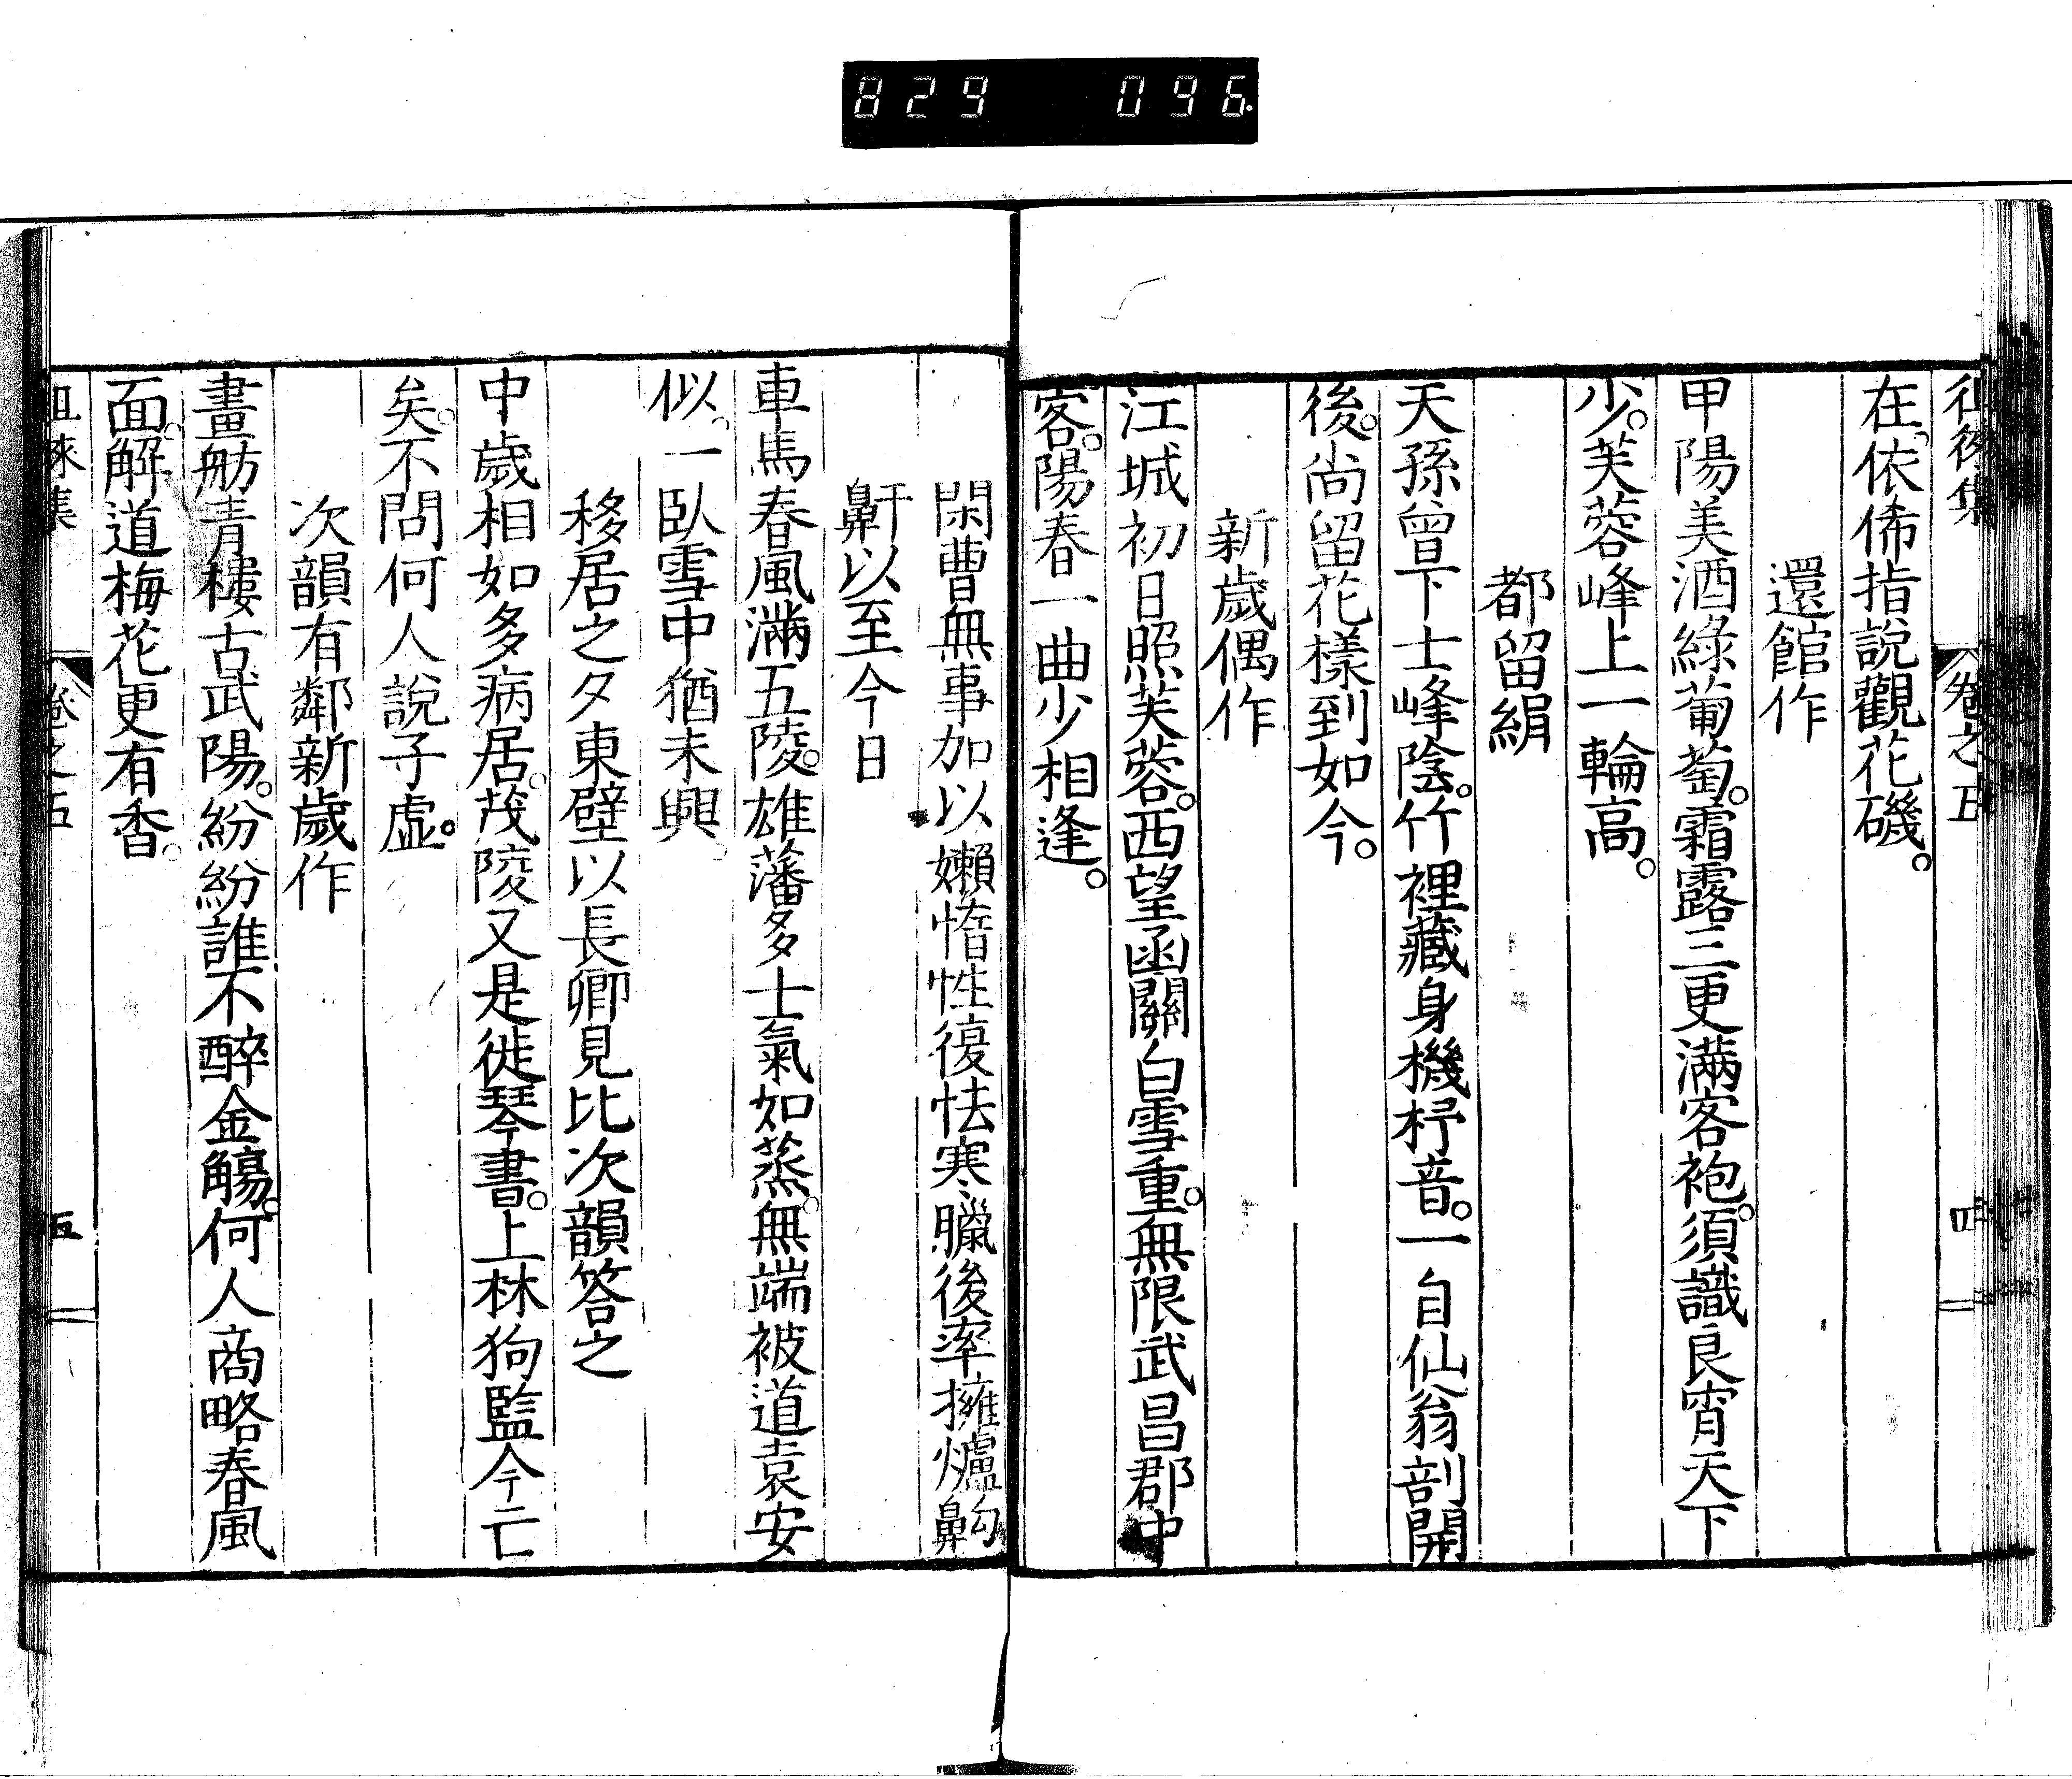 829 096
徂徠集 卷之五 四
在。依俙指說觀花磯。
還館作
甲陽美酒綠葡萄。霜露三更滿客袍。須識良宵天下
少。芙蓉峰上一輪高。
都留絹
天孫曾下士峰陰。竹裡藏身機杼音。一自仙翁剖開
後。尚留花樣到如今。
新歲偶作
江城初日照芙蓉。西望函關白雪重。無限武昌郡中
客。陽春一曲少相逢。
閑曹無事加以嬾惰性復怯寒臘後率擁爐齁
鼾以至今日
車馬春風滿五陵。雄藩多士氣如蒸。無端被道袁安
似。一臥雪中猶未興。
移居之夕東壁以長卿見比次韻答之
中歲相如多病居。茂陵又是徙琴書。上林狗監今亡
矣。不問何人說子虛。
次韻有鄰新歲作
畫舫青樓古武陽。紛紛誰不醉金觴。何人商略春風
面。解道梅花更有香。
徂徠集 卷之五 五